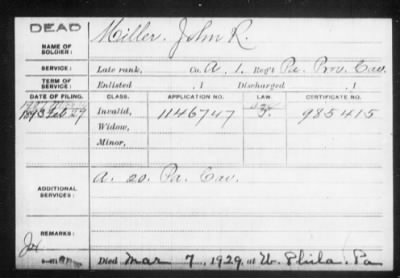 DEAD
NAME OF SOLDIER: Miller. John R.
SERVICE: Late rank, Co. A, 1. Reg't Pa. Prov. Cav.
TERM OF SERVICE: Enlisted , 1 Discharged , 1
DATE OF FILING. CLASS. APPLICATION NO. LAW. CERTIFICATE NO.
Invalid, 1146747 985415
Widow,
Minor,
ADDITIONAL SERVICES: A. 20. Pa. Cav.
REMARKS:
Died Mar 7, 1929, at W. Phila. Pa